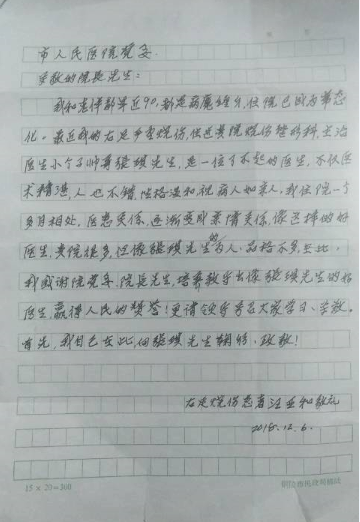 市人民医院党委
尊敬的院长先生：
我和老伴都年近90，都是病魔缠身，住院已成为常态
化。最近我的右足严重烧伤，住进贵院烧伤整形科，主治
医生小个子帅哥张琪先生，是一位了不起的医生，不仅医
术精湛，人也不错，性格温和，视病人如亲人，我住院一个
多月相处，医患关系，逐渐变成亲情关系，像这样的好
医生，贵院很多，但像张琪先生的为人，品格不多，在此，
我感谢院党委、院长先生，培养教导出像张琪先生的好
医生，赢得人民的赞誉！更请领导号召大家学习、学教。
首先，我自己在此，向张琪先生鞠躬、致敬！
右足烧伤患者汪亚和敬礼
2018.12.6.
15×20=300